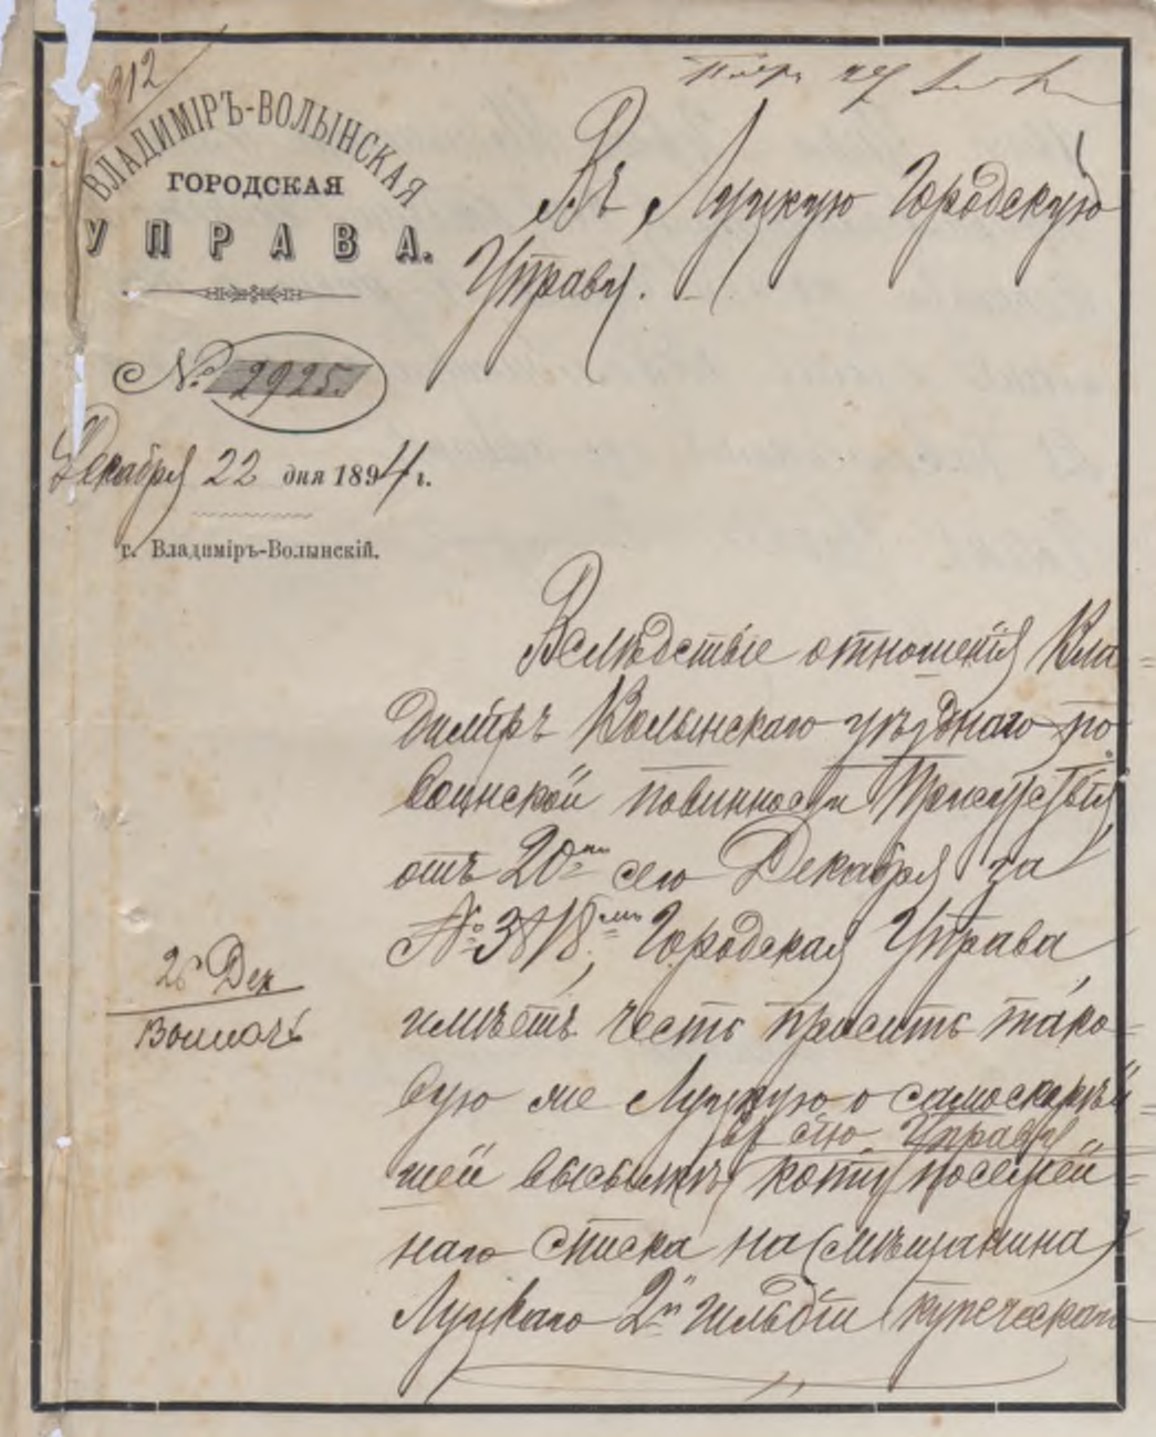 912
ВЛАДИМІРЪ-ВОЛЫНСКАЯ
ГОРОДСКАЯ
УПРАВА.
№ 2925.
Декабря 22 дня 1894 г.
г. Владиміръ-Волынскій.
Въ Луцкую Городскую
Управу.
Вслѣдствіе отношенія Вла=
диміръ Волынскаго уѣзднаго по
воинской повинности Присутствія
отъ 20го сего Декабря за
№ 3818мъ, Городская Управа
имѣетъ честь просить тако=
вую же Луцкую о самоскорѣй=
въ сію Управу
шей высылкѣ копіи посемей=
наго списка на (мѣщанина)
Луцкаго 2й гильдіи купеческаго
26 Дек